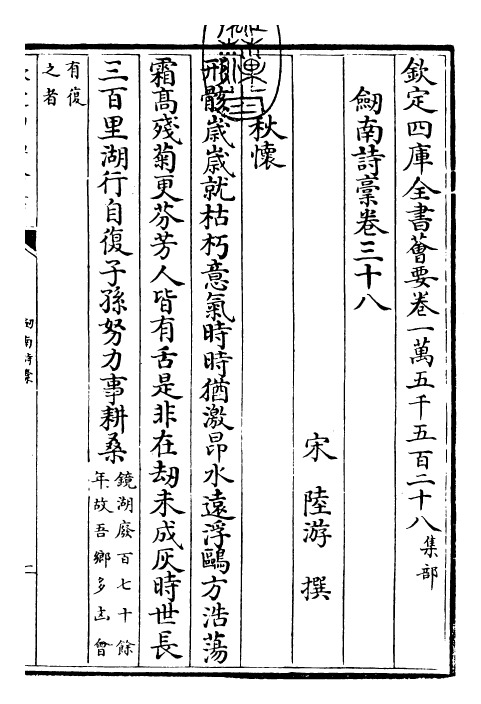 欽定四庫全書薈要卷一萬五千五百二十八 集部
劒南詩藁卷三十八
宋 陸游 撰
秋懷
形骸歲歲就枯朽意氣時時猶激昂水遠浮鷗方浩蕩
霜髙殘菊更芬芳人皆有舌是非在刼未成灰時世長
三百里湖行自復子孫努力事耕桑 鏡湖廢百七十餘
年故吾鄉多占會
有復
之者